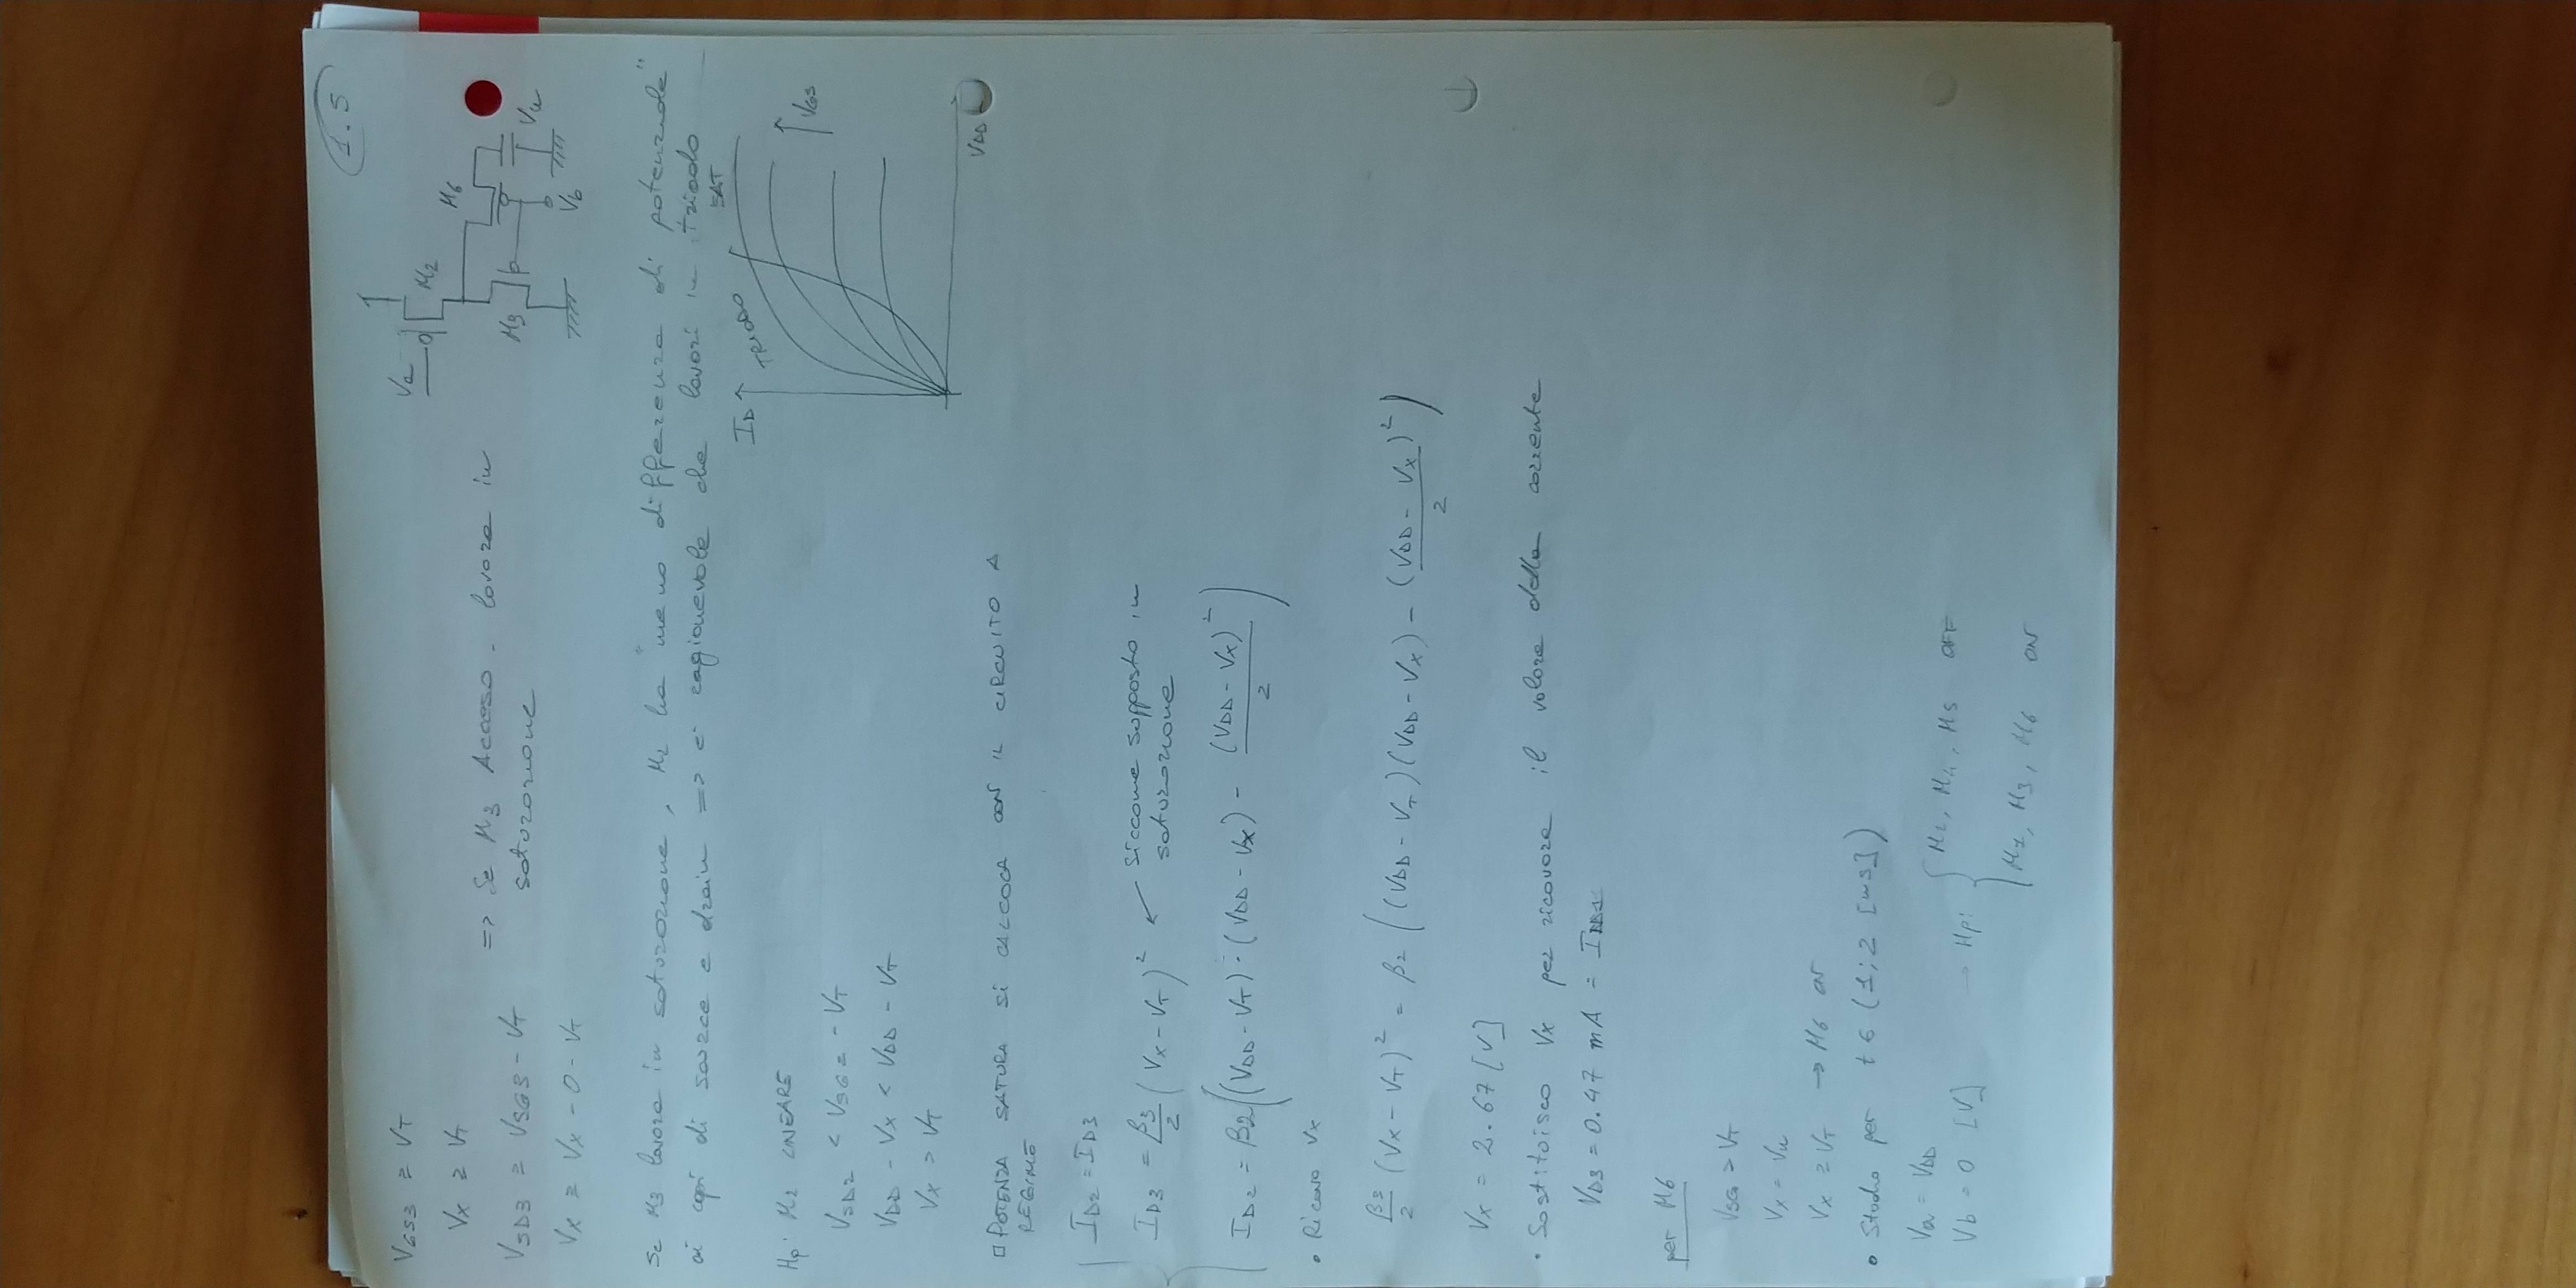 1.5
VGS3 ≥ VT
Vx ≥ VT
VSD3 ≥ VSG3 - VT
Vx ≥ Vx - 0 - VT
=> Se M3 Acceso - lavora in
saturazione
Va
M2
M6
M3
Vu
Vb
Se M3 lavora in saturazione, M2 ha "meno differenza di potenziale"
ai capi di source e drain => e' ragionevole che lavori in triodo
ID
TRIODO
SAT
VGS
VDD
Hp: M2 LINEARE
VSD2 < VSG2 - VT
VDD - Vx < VDD - VT
Vx > VT
□ POTENZA SATURA SI CALCOLA CON IL CIRCUITO A
REGIME
ID2 = ID3
ID3 = β3/2 (Vx - VT)² ← siccome supposto in
saturazione
ID2 = β2((VDD - VT) · (VDD - Vx) - (VDD - Vx)²/2)
• Ricavo Vx
β3/2 (Vx - VT)² = β2 ((VDD - VT)(VDD - Vx) - (VDD - Vx)²/2)
Vx = 2.67 [V]
• Sostituisco Vx per ricavare il valore della corrente
VD3 = 0.47 mA =
per M6
VSG > VT
Vx = Vu
Vx ≥ VT → M6 on
• Studio per t ∈ (1; 2 [ms])
Va = VDD
Vb = 0 [V] → Hp: { M2, M4, M5 OFF
M1, M3, M6 ON